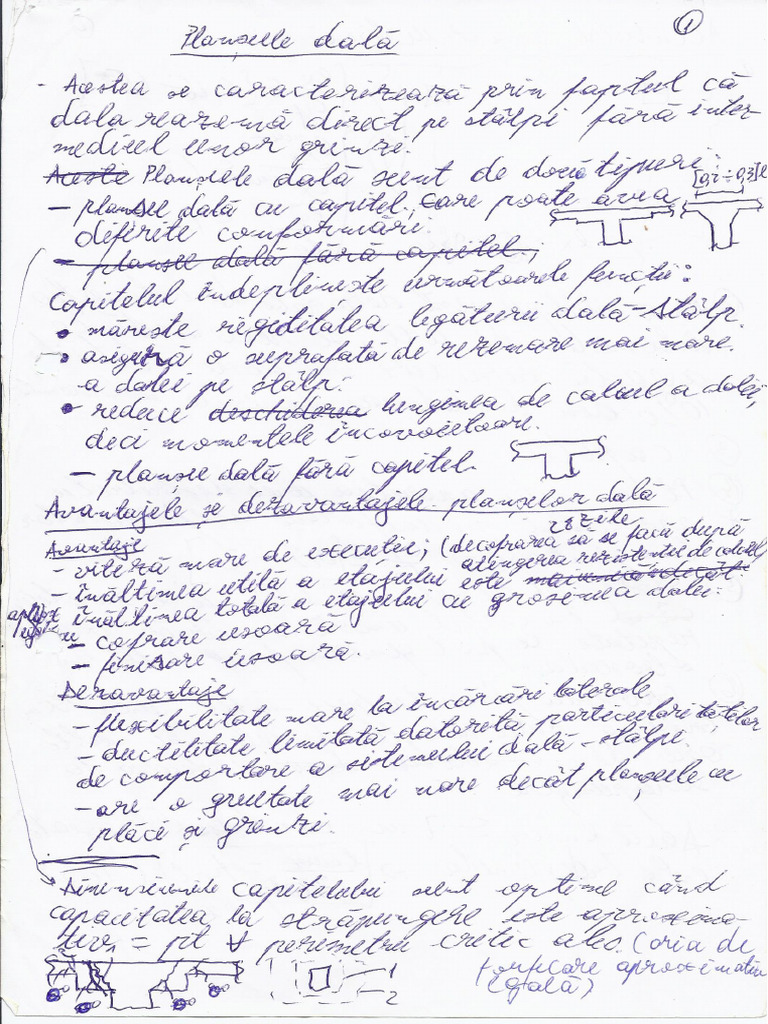 1
Planșeele dală
- Acestea se caracterizează prin faptul că
dala reazemă direct pe stâlpi fără inter-
mediul unor grinzi.
Aceste Planșeele dală sunt de două tipuri:
[0,2 ÷ 0,3]l
- planșee dală cu capitel, care poate avea
diferite conformări.
- planșee dală fără capitel.;
Capitelul îndeplinește următoarele funcții:
• mărește rigiditatea legăturii dală-stâlp.
• asigură o suprafață de rezemare mai mare.
a dalei pe stâlp.
• reduce deschiderea lungimea de calcul a dalei,
deci momentele încovoietoare.
- planșee dală fără capitel.
Avantajele și dezavantajele planșeelor dală
Avantaje
28 zile
- viteză mare de execuție; (decofrarea să se facă după
atingerea rezistenței de calcul)
- înălțimea utilă a etajului este
înălțimea totală a etajului cu grosimea dalei.
- cofrare ușoară
- finisare ușoară.
Dezavantaje
- flexibilitate mare la încărcări laterale
- ductilitate limitată datorită particularităților
de comportare a sistemului dală-stâlpi.
- are o greutate mai mare decât planșeele cu
plăci și grinzi.
Dimensiunile capitelului sunt optime când
capacitatea la străpungere este aproxima-
tiv = pt ∀ perimetru critic ales. (aria de
forfecare aproximativ
egală)
1
2